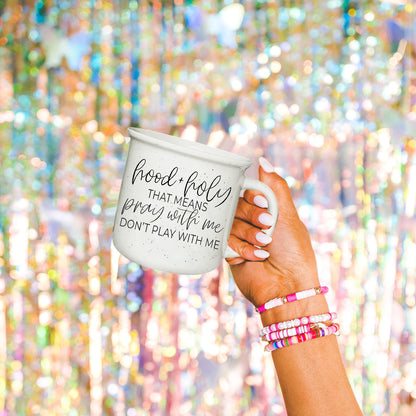 hood + holy
THAT MEANS
pray with me
DON'T PLAY WITH ME